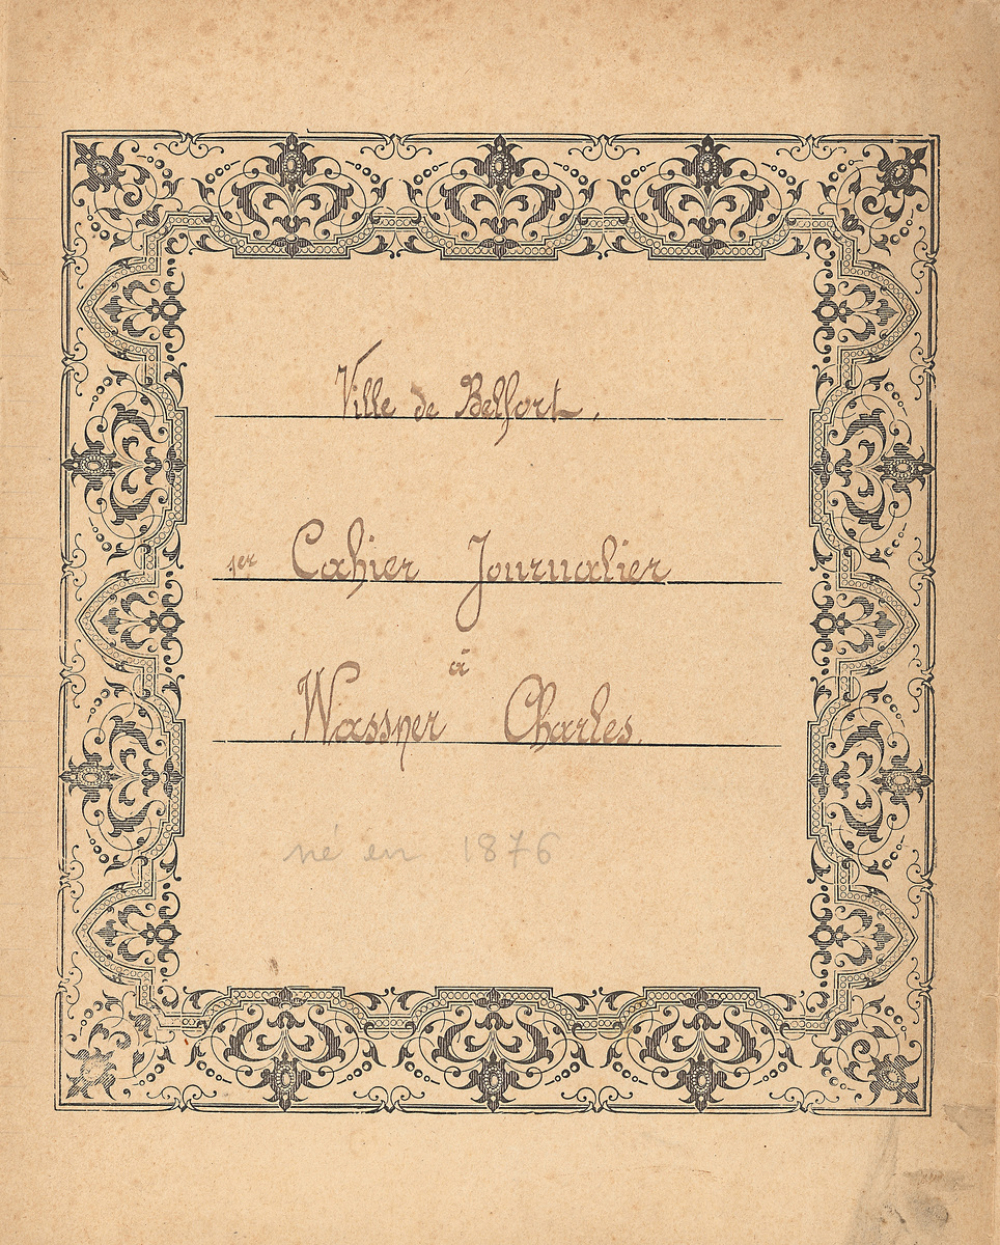 Ville de Belfort.
1er Cahier Journalier
à
Wassner Charles.
né en 1876